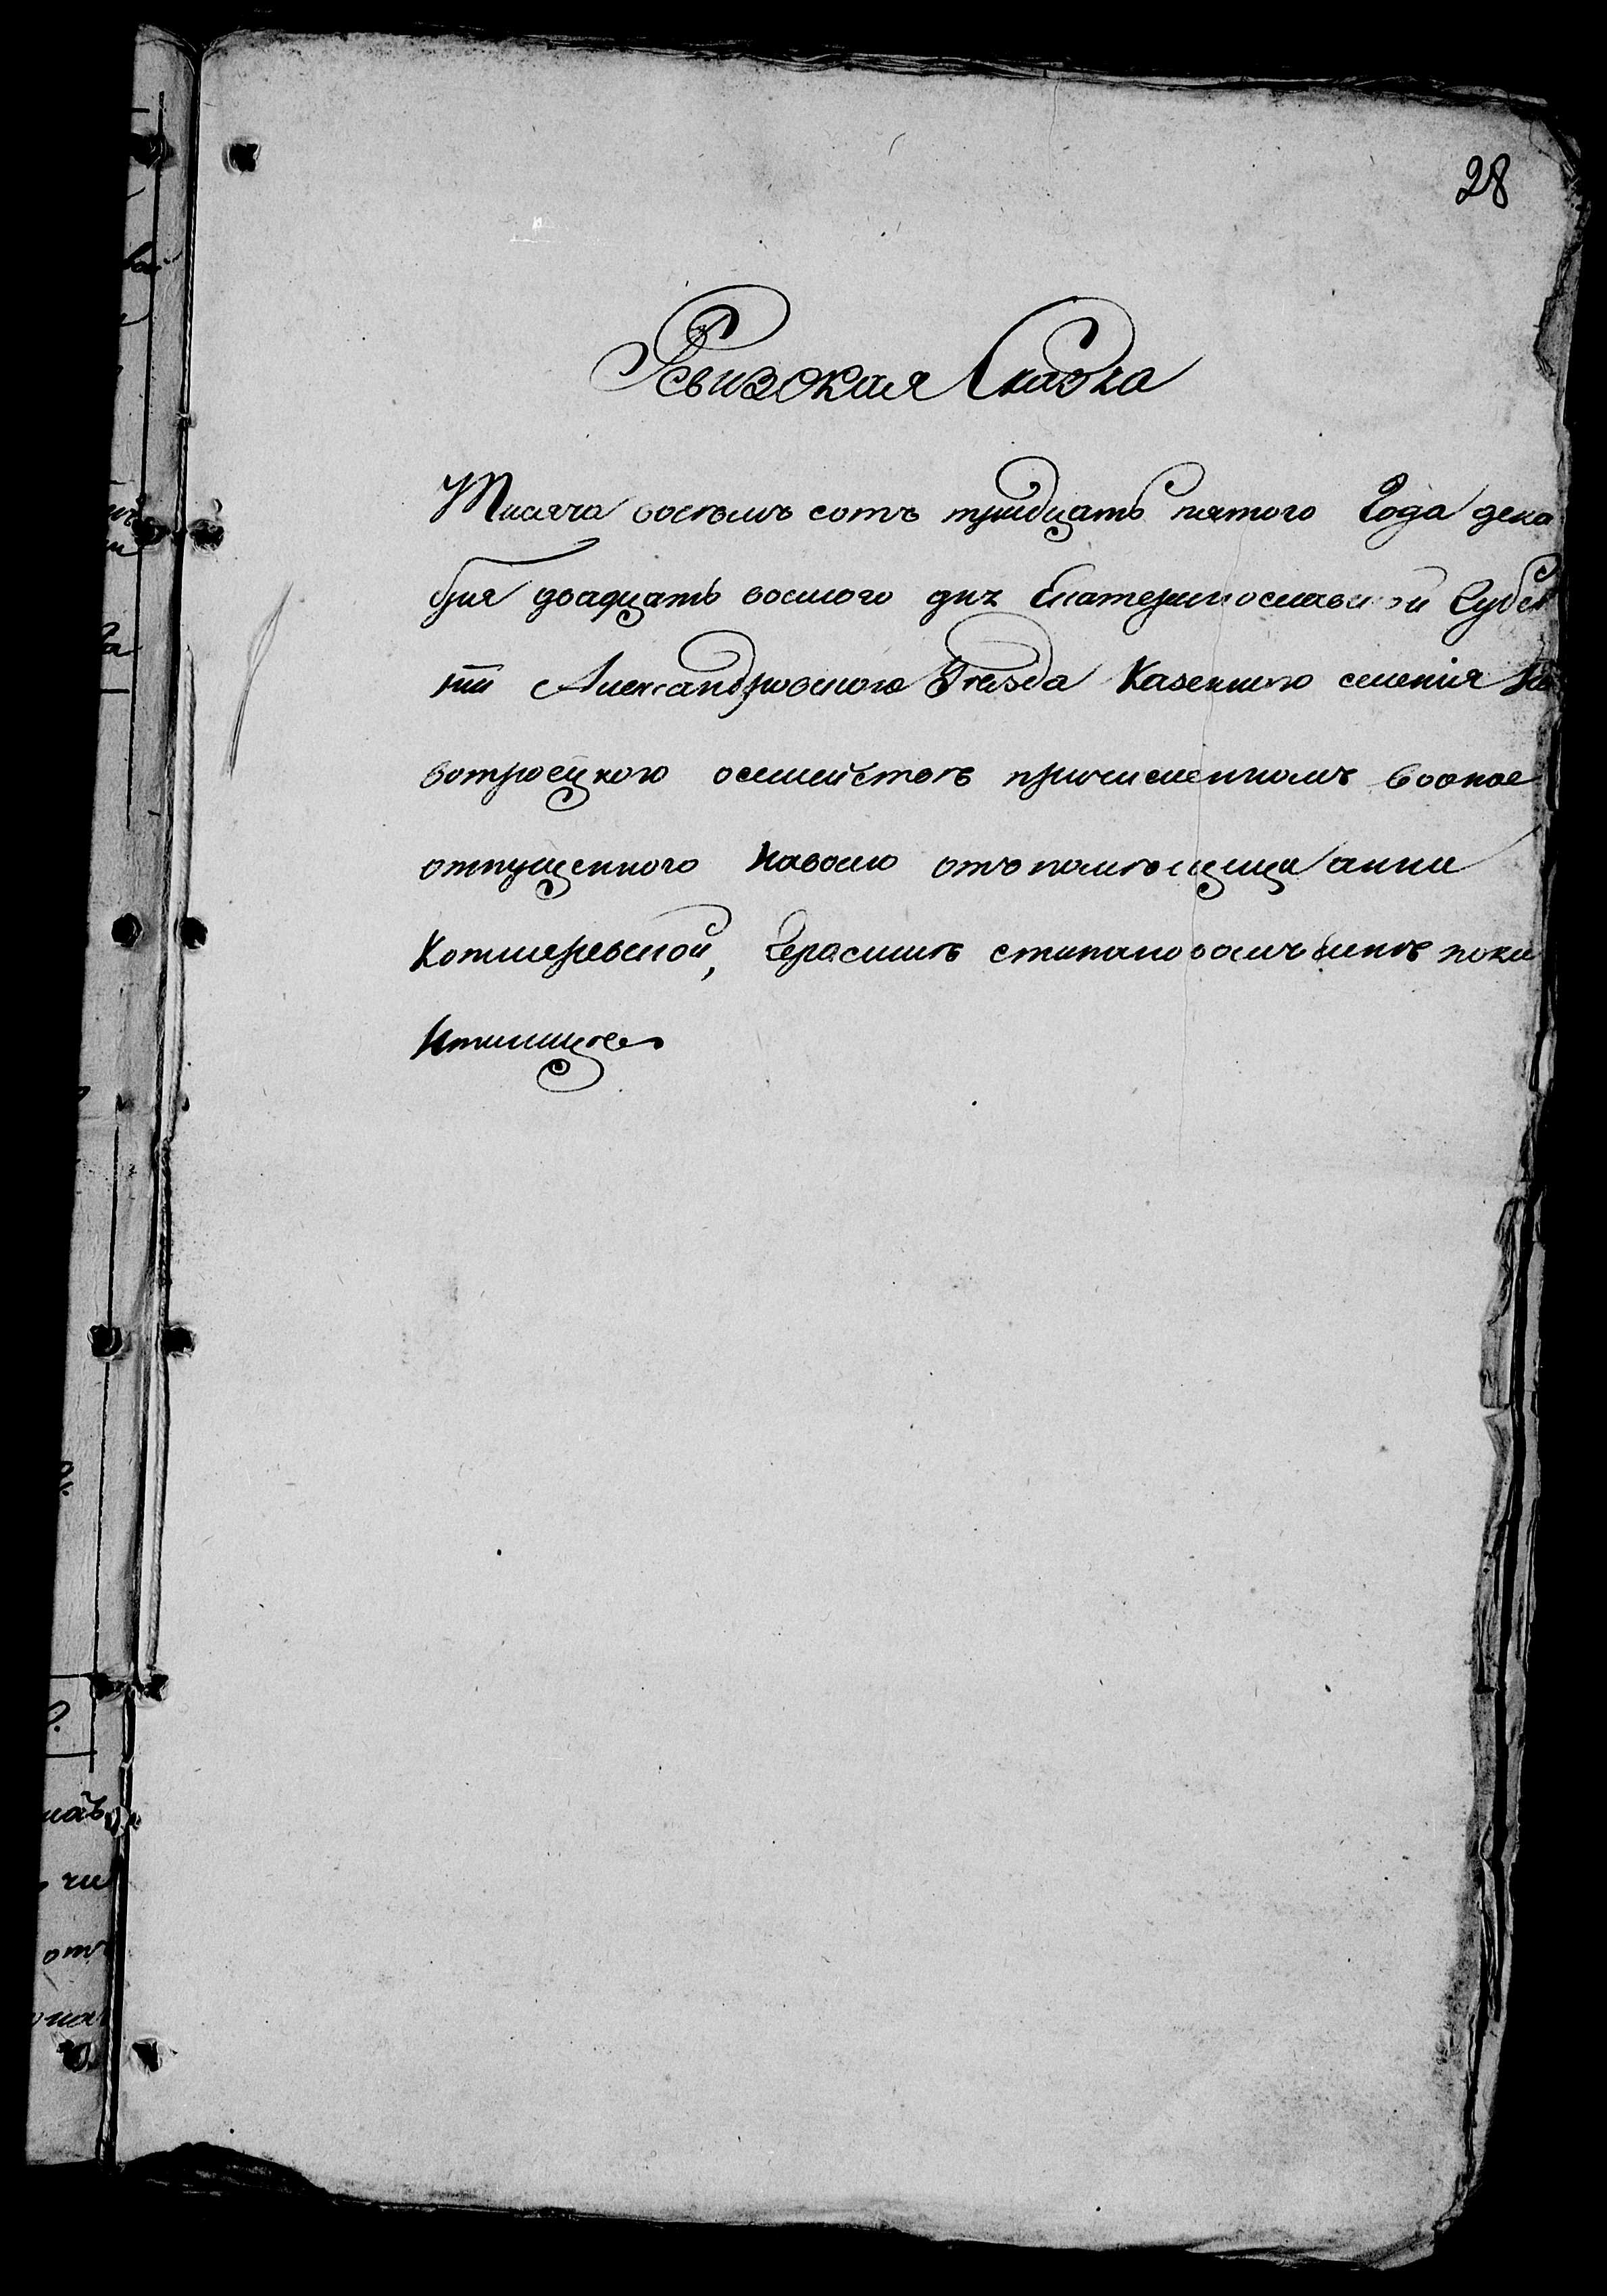 28
Ревизская Сказка
Тисяча восемъ сотъ тридцать пятого Года дека
бря двадцать восмого дня Екатеринославской Губер
нии Александровского Уезда Казенного селенія Но
вотроецкого осемействѣ причисленномъ
отпущенного наволю отъ помѣщицы анни
Котляревской, Герасимѣ